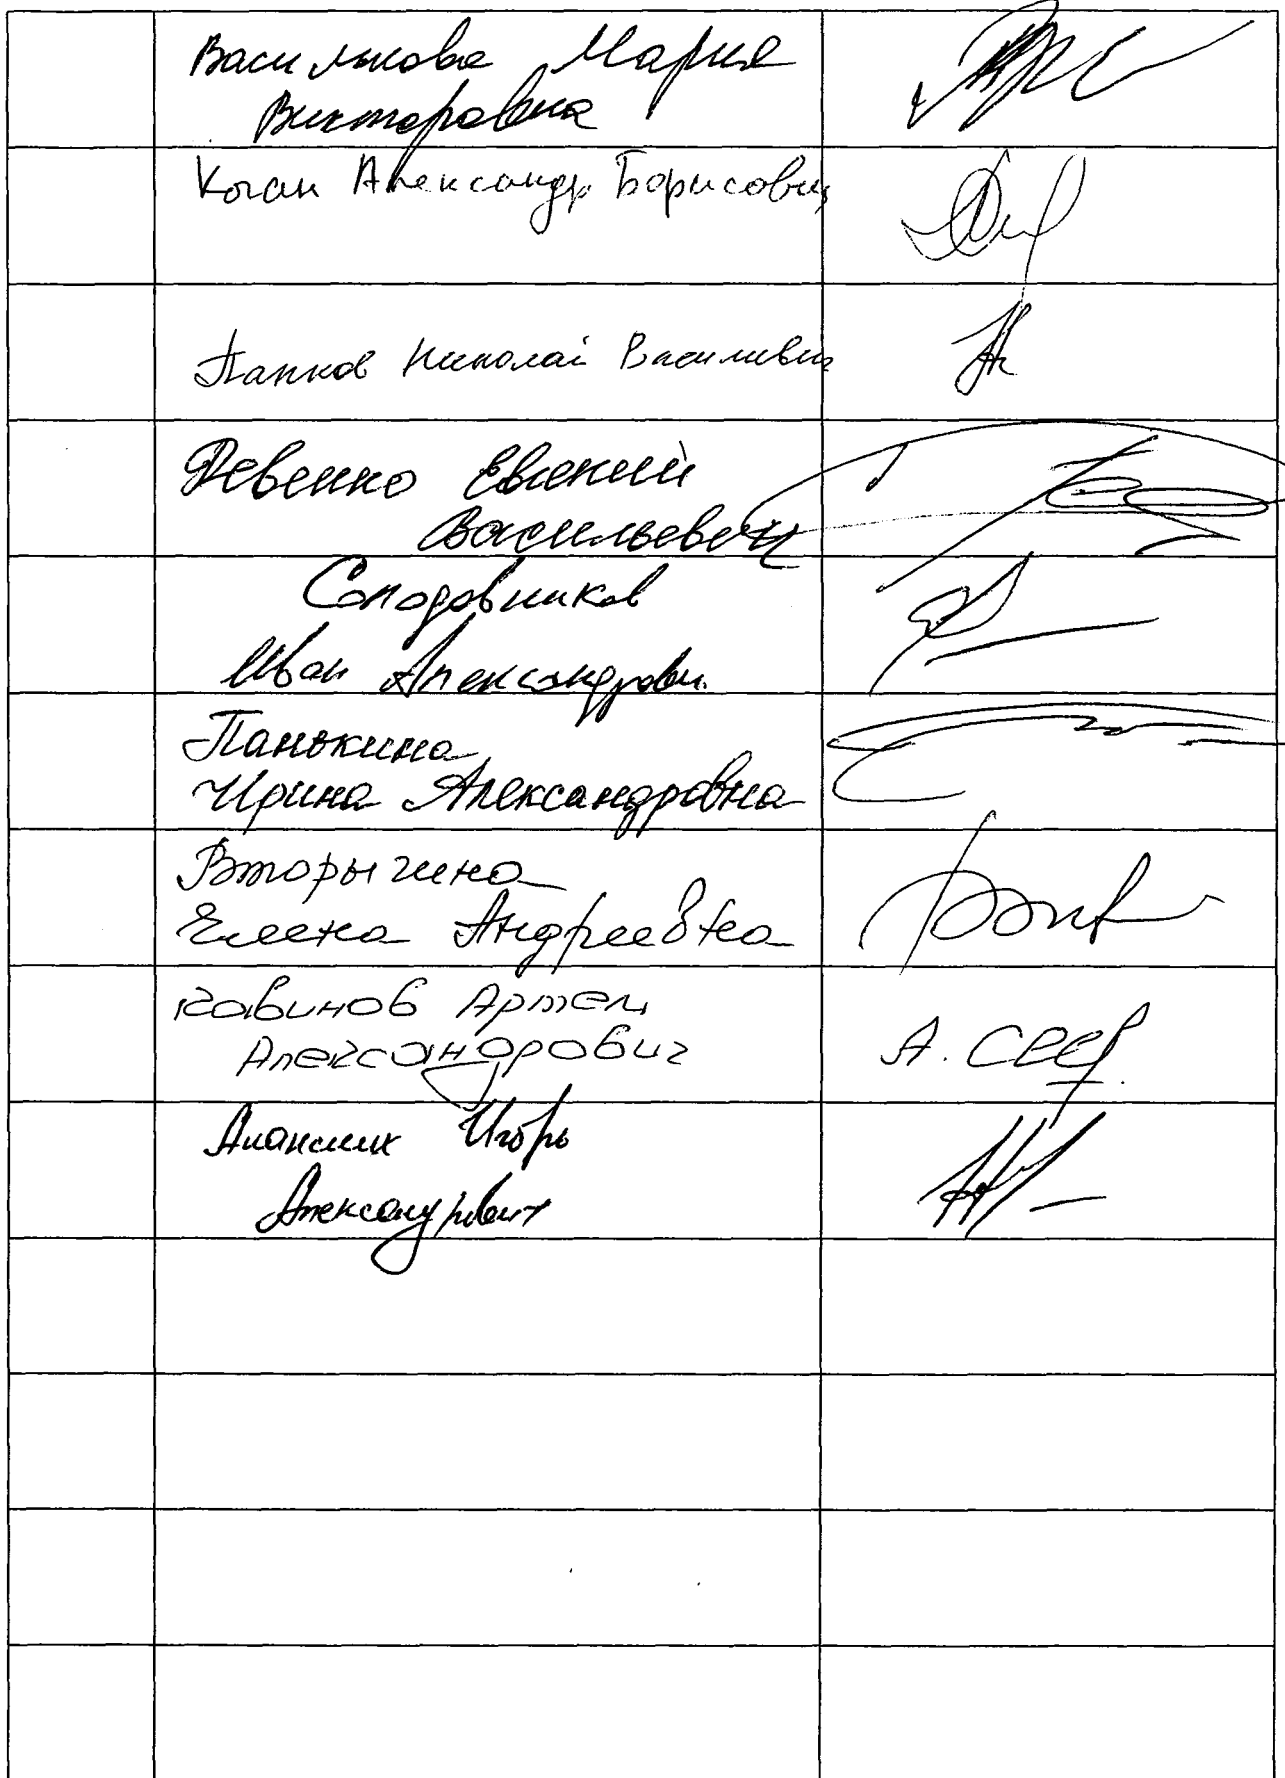 Василькова Мария
Викторовна
Коган Александр Борисович
Папков Николай Василиевич
Левенко Евгений
Васильевич
Солодовников
Иван Александрови
Панькина
Ирина Александровна
Вторыгина
Елена Андреевна
Кавинов Артем
Александрович
Игорь
Александрович